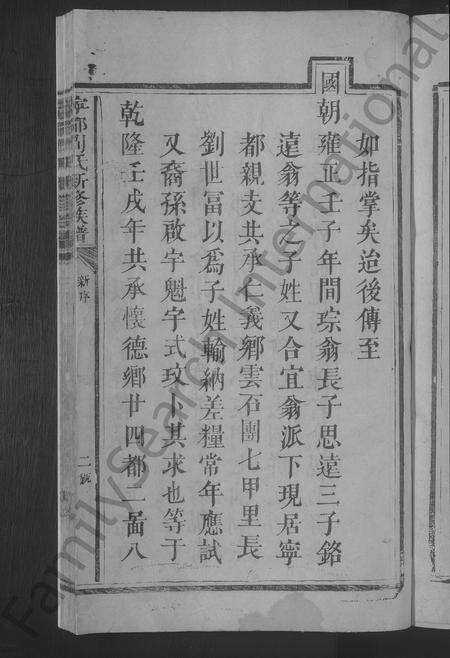 如指掌矣迨後傳至
國朝雍正壬子年間琮翁長子思遠三子銘
遠翁等之子姓又合宜翁派下現居寧
都親支共承仁義鄉雲石團七甲里長
劉世冨以為子姓輸納差糧常年應試
又裔孫啟宇魁宇式玟卜其求也等于
乾隆壬戌年共承懷德鄉廿四都二啚八
寧都劉氏新修族譜
新序
二
FamilySearch International